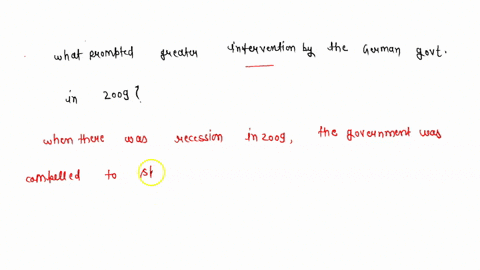 what prompted greater intervention by the German govt.
in 2009?
when there was recession in 2009, the government was
compelled to st